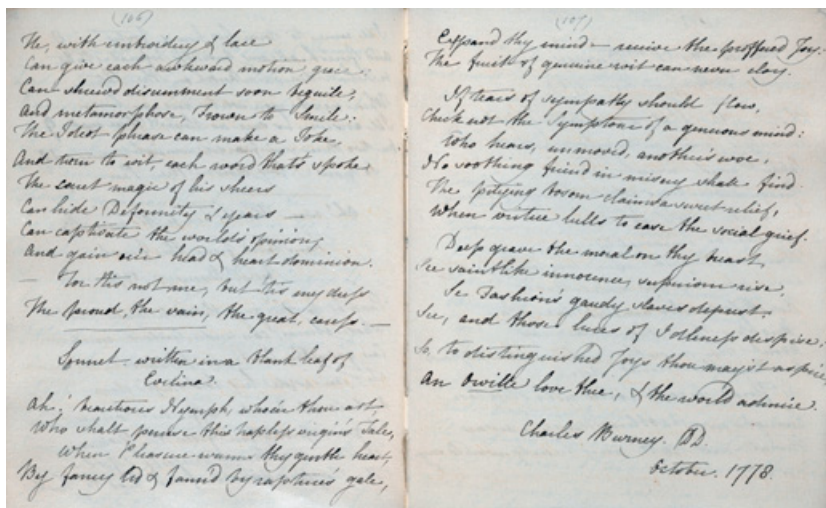 (106)
He, with embroidery & lace
Can give each awkward motion grace:
Can shrewd discernment soon beguile,
And metamorphose, Frown to Smile:
The Idiot phrase can make a Joke,
And turn to wit, each word that's spoke
The covet magic of his sheers
Can hide Deformity & years —
Can captivate the world's opinion,
And gain o'er head & heart dominion.
— For tis not me, but tis my dress
The proud, the vain, the great, caress —
Sonnet written in a blank leaf of
Evelina.
Ah! beauteous Nymph, whoe'er thou art,
Who shalt peruse this hapless virgin's Tale,
When Pleasure warms thy gentle heart,
By fancy led & fann'd by rapture's gale,
(107)
Expand thy mind — receive the proffered Joy:
The fruits of genuine wit can never cloy.
If tears of sympathy should flow,
Check not the Symptoms of a generous mind:
Who hears, unmoved, another's woe,
No soothing friend in misery shall find.
The pitying bosom claims a sweet relief,
When virtue bills to ease the social grief.
Deep grave the moral on thy breast,
See saintlike innocence, superiour rise,
See Fashion's gaudy slaves deprest,
See, and those lures of Idleness dispise:
So, to distinguished Joys thou may'st aspire,
An Orville love thee, & the world admire.
Charles Burney. DD.
October. 1778.